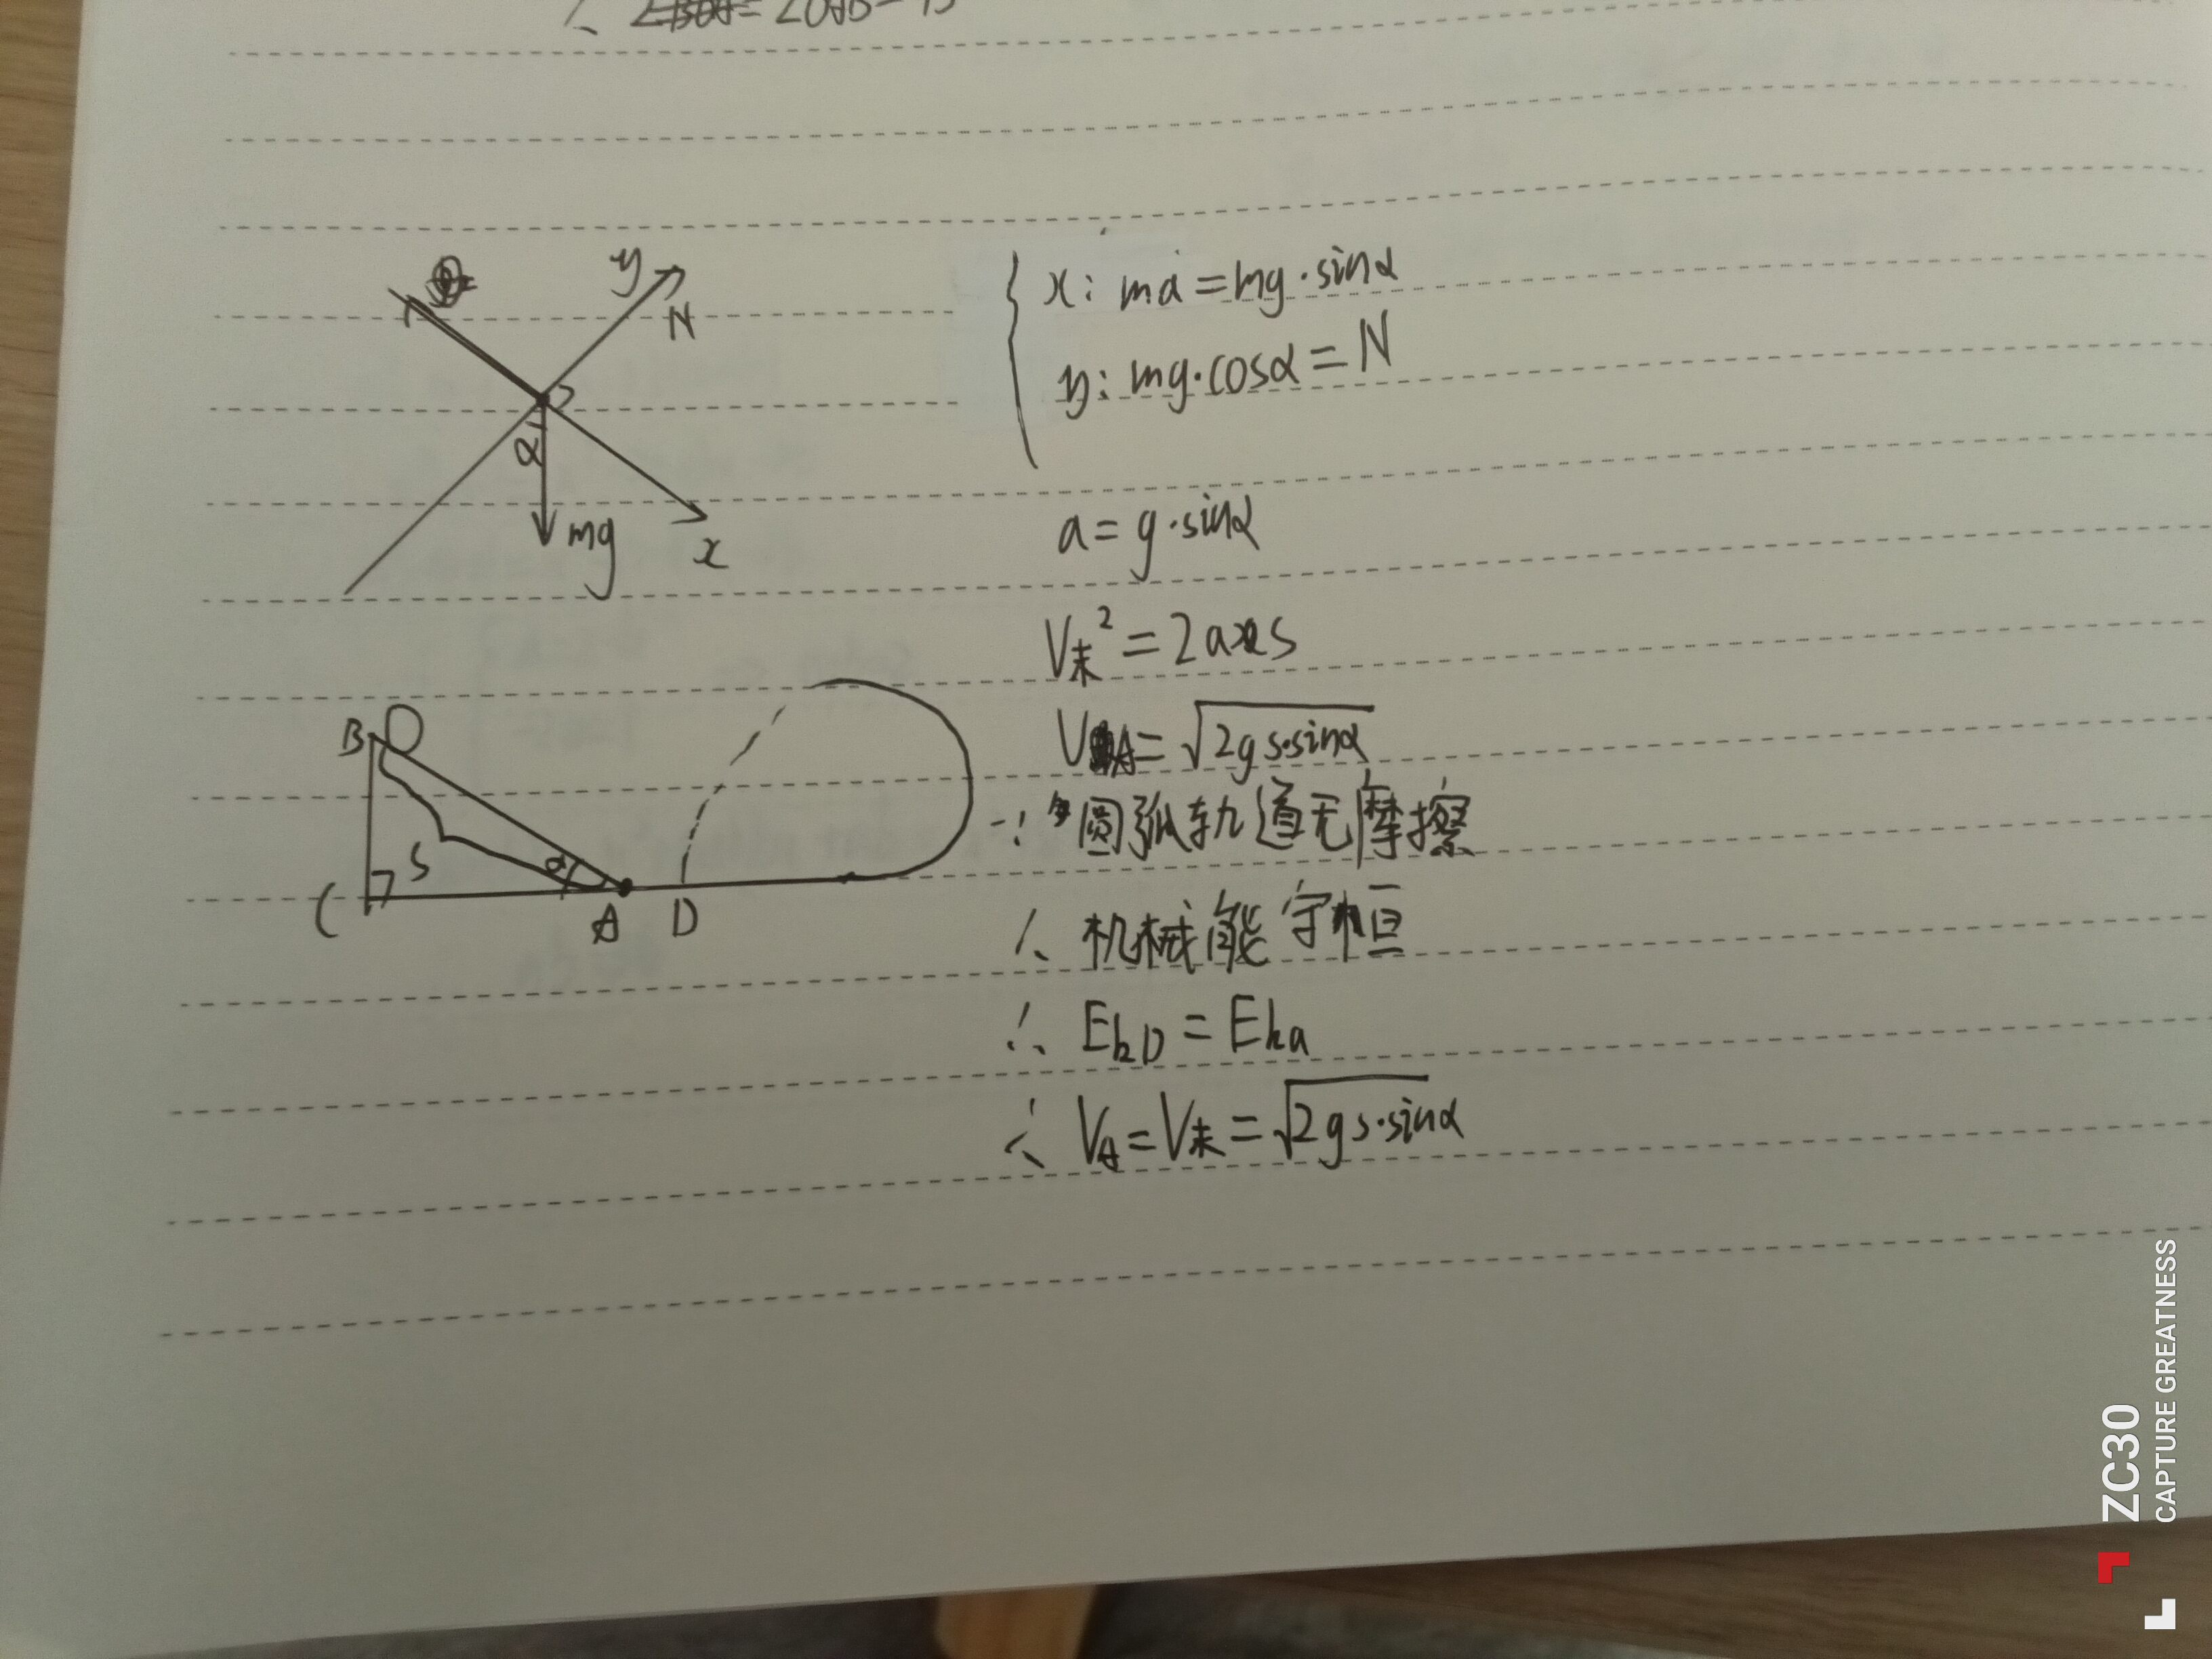 ∠OAB=
y
N
α
mg
x
x: ma=mg·sinα
y: mg·cosα=N
a=g·sinα
V末²=2as
VA=√2gs·sinα
B
S
α
C
A
D
∵圆弧轨道无摩擦
∴ 机械能守恒
∴ EkD=Eka
∴ VA=V末=√2gs·sinα
ZC30
CAPTURE GREATNESS